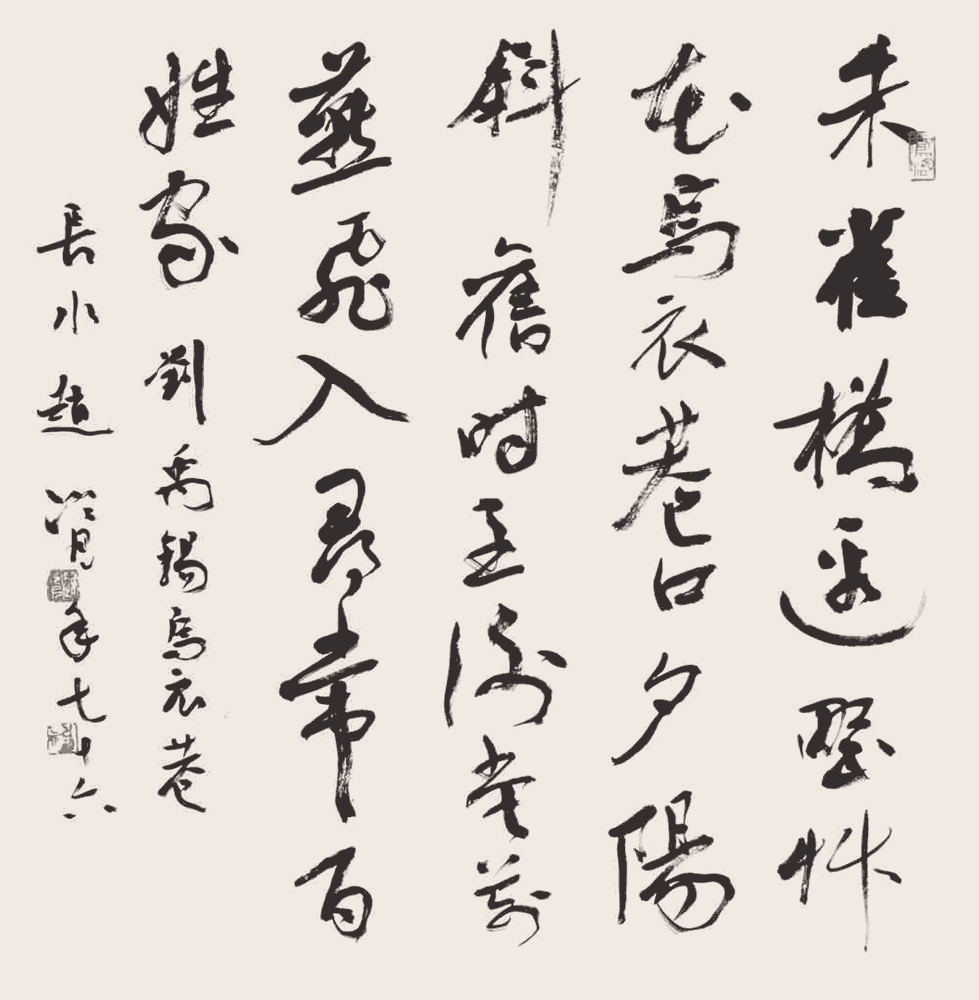 朱雀橋邊野艸
花烏衣巷口夕陽
斜舊時王謝堂前
燕飛入尋常百
姓家劉禹錫烏衣巷
長水趙冷月年七十六